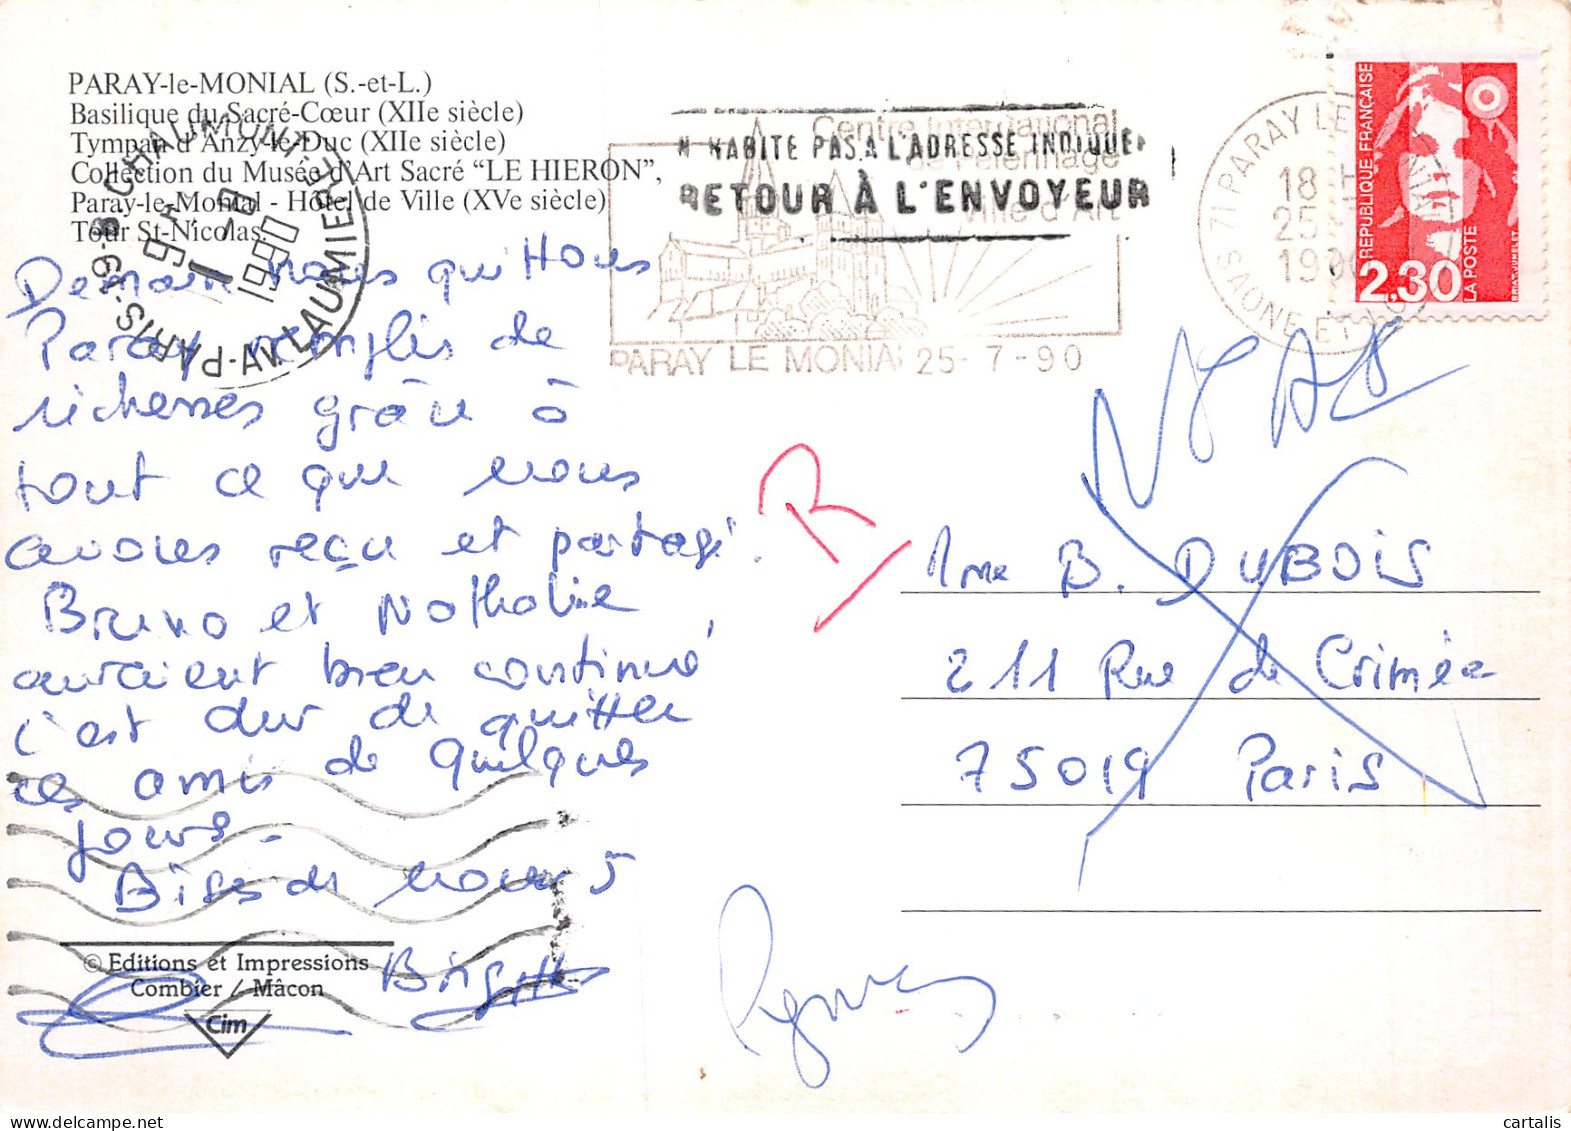 PARAY-le-MONIAL (S.-et-L.)
Basilique du Sacré-Cœur (XIIe siècle)
Tympan d'Anzy-le-Duc (XIIe siècle)
Collection du Musée d'Art Sacré "LE HIERON",
Paray-le-Monial - Hôtel de Ville (XVe siècle)
Tour St-Nicolas.
PARIS-69
AV LAUMIERE
1990
Centre International
de Pèlerinage
Ville d'Art
PARAY LE MONIAL 25-7-90
N HABITE PAS A L'ADRESSE INDIQUEE
RETOUR À L'ENVOYEUR
71 PARAY LE MONIAL
18 H
25
1990
SAONE ET LOIRE
REPUBLIQUE FRANÇAISE
2,30
LA POSTE
BRIAT-JUMELET
Demain nous quittons
Paray remplis de
richesses grâce à
tout ce que nous
avons reçu et partagé.
Bruno et Nathalie
auraient bien continué,
c'est dur de quitter
ces amis de quelques
jours.
Bises de nous 5
Brigitte
R
Mme B. DUBOIS
211 Rue de Crimée
75019 Paris
© Editions et Impressions
Combier / Mâcon
Cim
cartalis www.delcampe.net